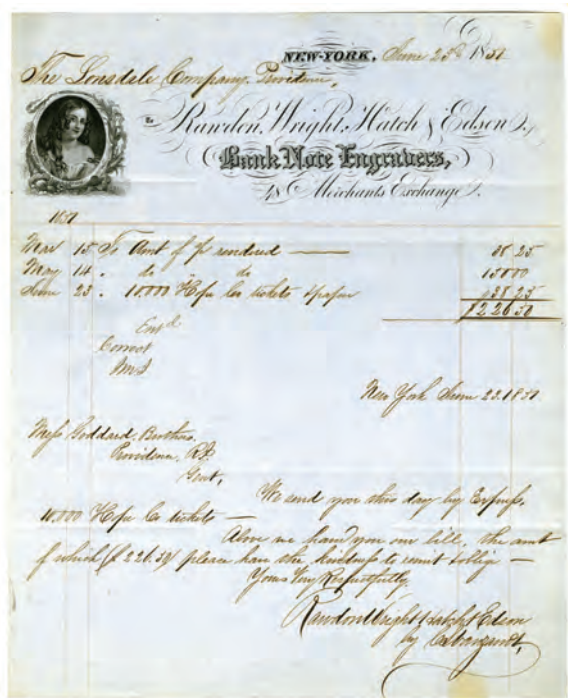 NEW-YORK, June 23d 1851
The Lonsdale Company, Providence,
To Rawdon, Wright, Hatch & Edson Dr.
Bank Note Engravers,
48 Merchants Exchange.
1851
Mar 15 To Amt of rendered — 38 25
May 14 " do do 150 00
June 23 " 10.000 Hope Co tickets & paper 38 25
$226 50
Entd
Correct
New York June 23. 1851
Mess Goddard Brothers
Providence, R.I.
Gent,
We send you this day by Express,
10.000 Hope Co tickets —
Above we hand you our bill, the amt
of which ($226.50) please have the kindness to remit & oblige —
Yours Very Respectfully
Rawdon Wright Hatch & Edson
by